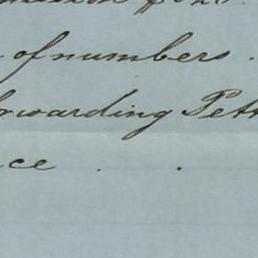 of numbers .
forwarding Pett
ce . .